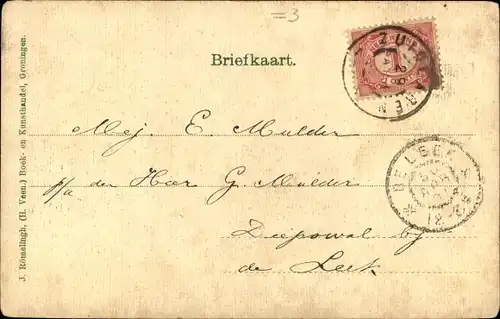 =3
Briefkaart.
Mej. E. Mulder
p/a den Heer G. Mulder
Diepswal bij
de Leek
J. Römelingh, (H. Veen.) Boek- en Kunsthandel, Groningen.
1
DE LEEK